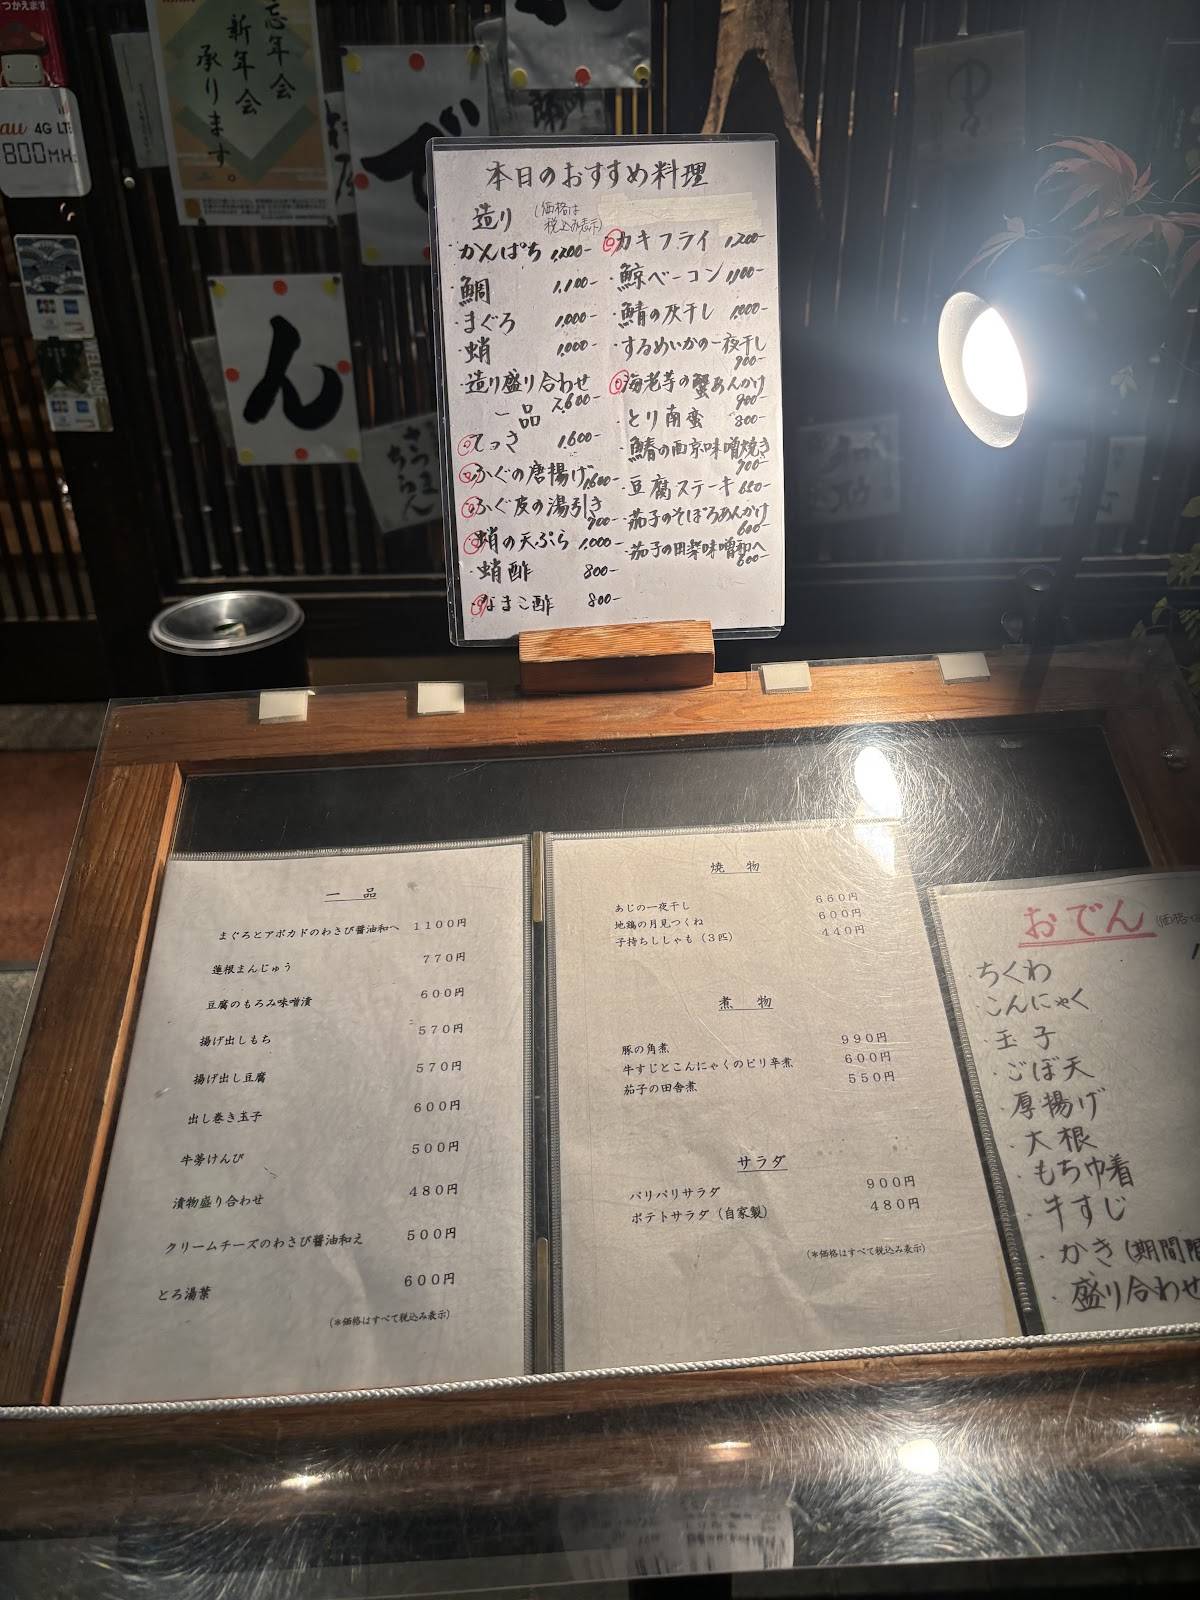 つかえます
au 4G LTE
800MHz
忘年会
新年会
承ります。
で
ん
さつま
ちらん
本日のおすすめ料理
造り (価格は
税込み表示)
・かんぱち 1,200-
・鯛 1,100-
・まぐろ 1,000-
・蛸 1,000-
・造り盛り合わせ
2,600-
一品
てっさ 1,600-
ふぐの唐揚げ 1,600-
ふぐ皮の湯引き
900-
蛸の天ぷら 1,000-
・蛸酢 800-
なまこ酢 800-
カキフライ 1,200-
・鯨ベーコン 1,100-
・鯖の灰干し 1,000-
・するめいかの一夜干し
900-
海老芋の蟹あんかけ
900-
・とり南蛮 800-
・鰆の西京味噌焼き
900-
・豆腐ステーキ 650-
・茄子のそぼろあんかけ
600-
・茄子の田楽味噌和へ
600-
一品
まぐろとアボカドのわさび醤油和へ 1100円
蓮根まんじゅう 770円
豆腐のもろみ味噌漬 600円
揚げ出しもち 570円
揚げ出し豆腐 570円
出し巻き玉子 600円
牛蒡けんぴ 500円
漬物盛り合わせ 480円
クリームチーズのわさび醤油和え 500円
とろ湯葉 600円
(*価格はすべて税込み表示)
焼物
あじの一夜干し 660円
地鶏の月見つくね 600円
子持ちししゃも(3匹) 440円
煮物
豚の角煮 990円
牛すじとこんにゃくのピリ辛煮 600円
茄子の田舎煮 550円
サラダ
パリパリサラダ 900円
ポテトサラダ(自家製) 480円
(*価格はすべて税込み表示)
おでん (価格
・ちくわ
・こんにゃく
・玉子
・ごぼ天
・厚揚げ
・大根
・もち巾着
・牛すじ
・かき(期間限
・盛り合わせ